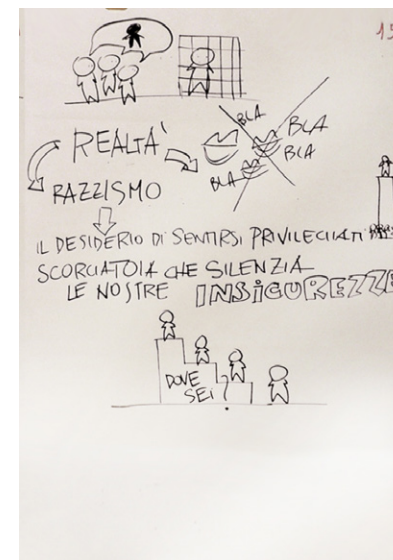 15
BLA
BLA
BLA
BLA
REALTÀ
RAZZISMO
IL DESIDERIO DI SENTIRSI PRIVILEGIATI
SCORCIATOIA CHE SILENZIA
LE NOSTRE INSICUREZZE
DOVE
SEI?